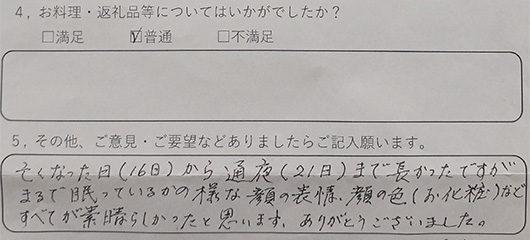 4, お料理・返礼品等についてはいかがでしたか？
□満足 ☑普通 □不満足
5, その他、ご意見・ご要望などありましたらご記入願います。
亡くなった日(16日)から通夜(21日)まで長かったですが
まるで眠っているかの様な顔の表情、顔の色(お化粧)など
すべてが素晴らしかったと思います。ありがとうございました。